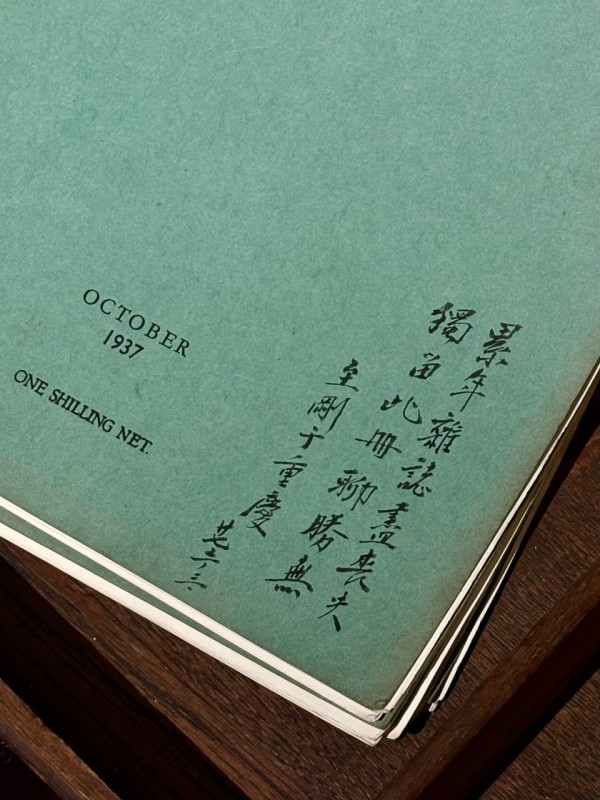 OCTOBER
1937
ONE SHILLING NET.
累年雜誌盡喪失
獨留此冊聊勝無
至剛于重慶
廿七、三、三